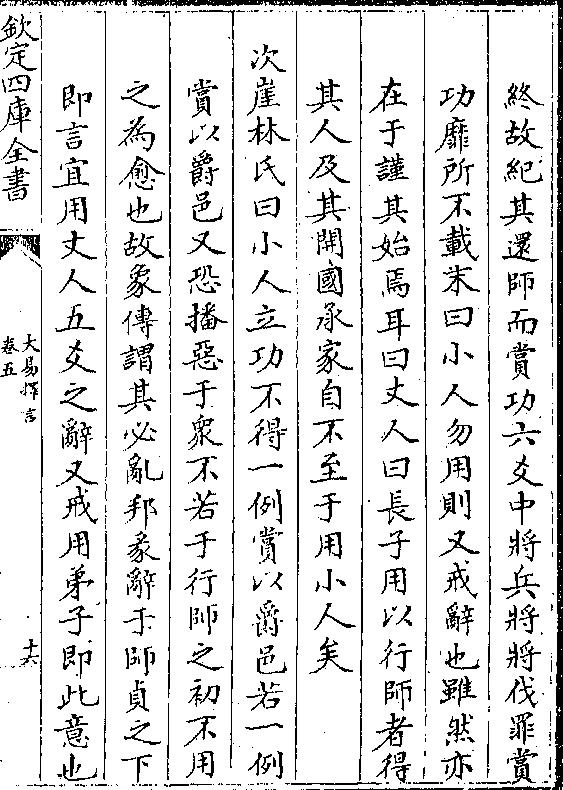 終故紀其還師而賞功六爻中將兵將將伐罪賞
功靡所不載末曰小人勿用則又戒辭也雖然亦
在于謹其始焉耳曰丈人曰長子用以行師者得
其人及其開國承家自不至于用小人矣
次崖林氏曰小人立功不得一例賞以爵邑若一例
賞以爵邑又恐播惡于衆不若于行師之初不用
之為愈也故象傳謂其必亂邦彖辭于師貞之下
即言宜用丈人五爻之辭又戒用弟子即此意也
欽定四庫全書
大易擇言
卷五
十六